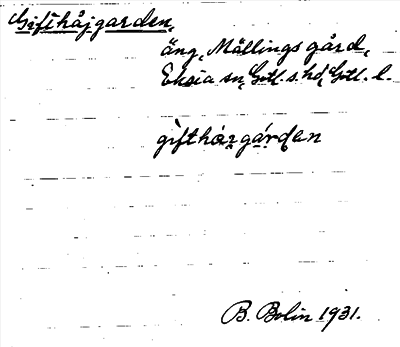 Gifthåjgarden,
äng, Mällings gård,
Eksta sn, Gotl. s. hd, Gotl. l.
B. Bolin 1931.